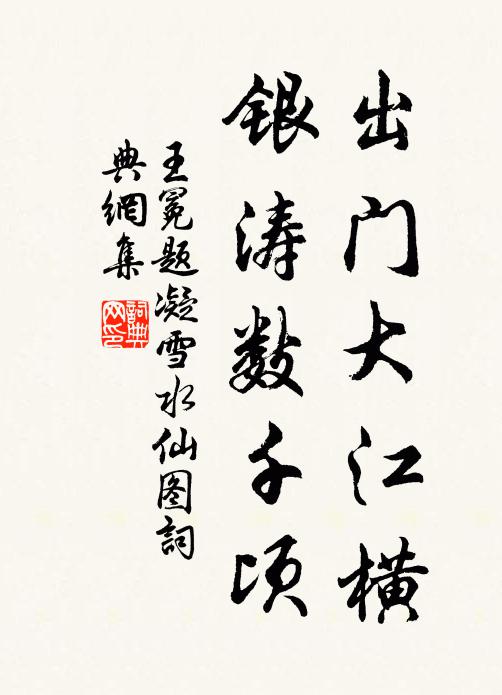 出门大江横
银涛数千顷
王冕题凝雪水仙图詞
典網集
詞典网印